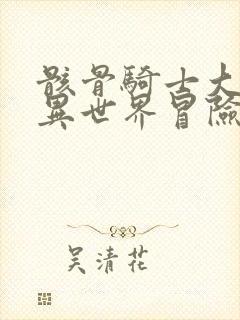 骸骨騎士大
異世界冒險
吴清花